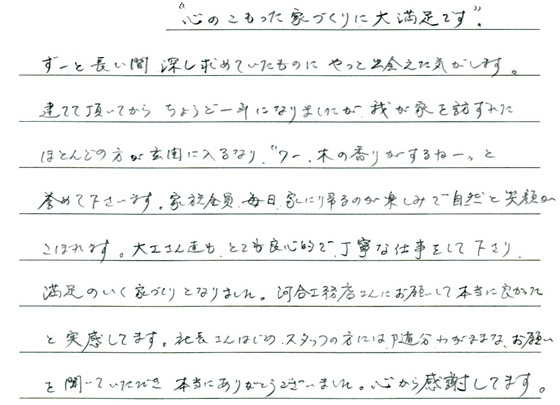 "心のこもった家づくりに大満足です"。
ずーと長い間 探し求めていたものに やっと出会えた気がします。
建てて頂いてから ちょうど一年になりましたが、我が家を訪ずれた
ほとんどの方が玄関に入るなり、"ワー、木の香りがするねー"と
誉めて下さいます。家族全員、毎日、家に帰るのが楽しみで自然と笑顔が
こぼれます。大工さん達も、とても良心的で、丁寧な仕事をして下さり、
満足のいく家づくりとなりました。河合工務店さんにお願いして本当に良かった
と実感してます。社長さんはじめ、スタッフの方には、随分わがままな、お願い
を聞いていただき 本当にありがとうございました。心から感謝してます。